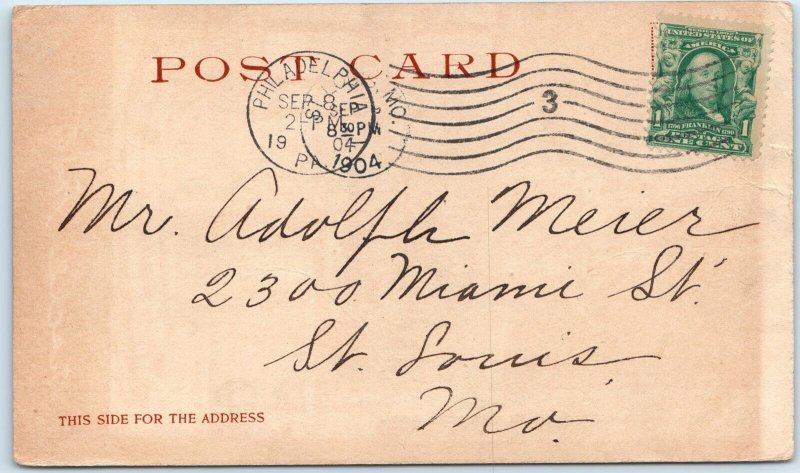 POST CARD
PHILADELPHIA
SEP 8
2-PM
19 04
PA
MO.
SEP
8 30 PM
1904
3
SERIES 1902
UNITED STATES OF
AMERICA
1 1706 FRANKLIN 1790 1
POSTAGE
ONE CENT
Mr. Adolph Meier
2300 Miami St.
St. Louis,
Mo.
THIS SIDE FOR THE ADDRESS